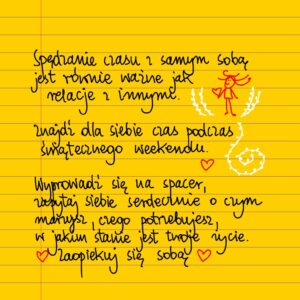 Spędzanie czasu z samym sobą
jest równie ważne jak
relacje z innymi.
znajdź dla siebie czas podczas
świątecznego weekendu.
Wyprowadź się na spacer,
zapytaj siebie serdecznie o czym
marzysz, czego potrzebujesz,
w jakim stanie jest twoje życie.
zaopiekuj się sobą